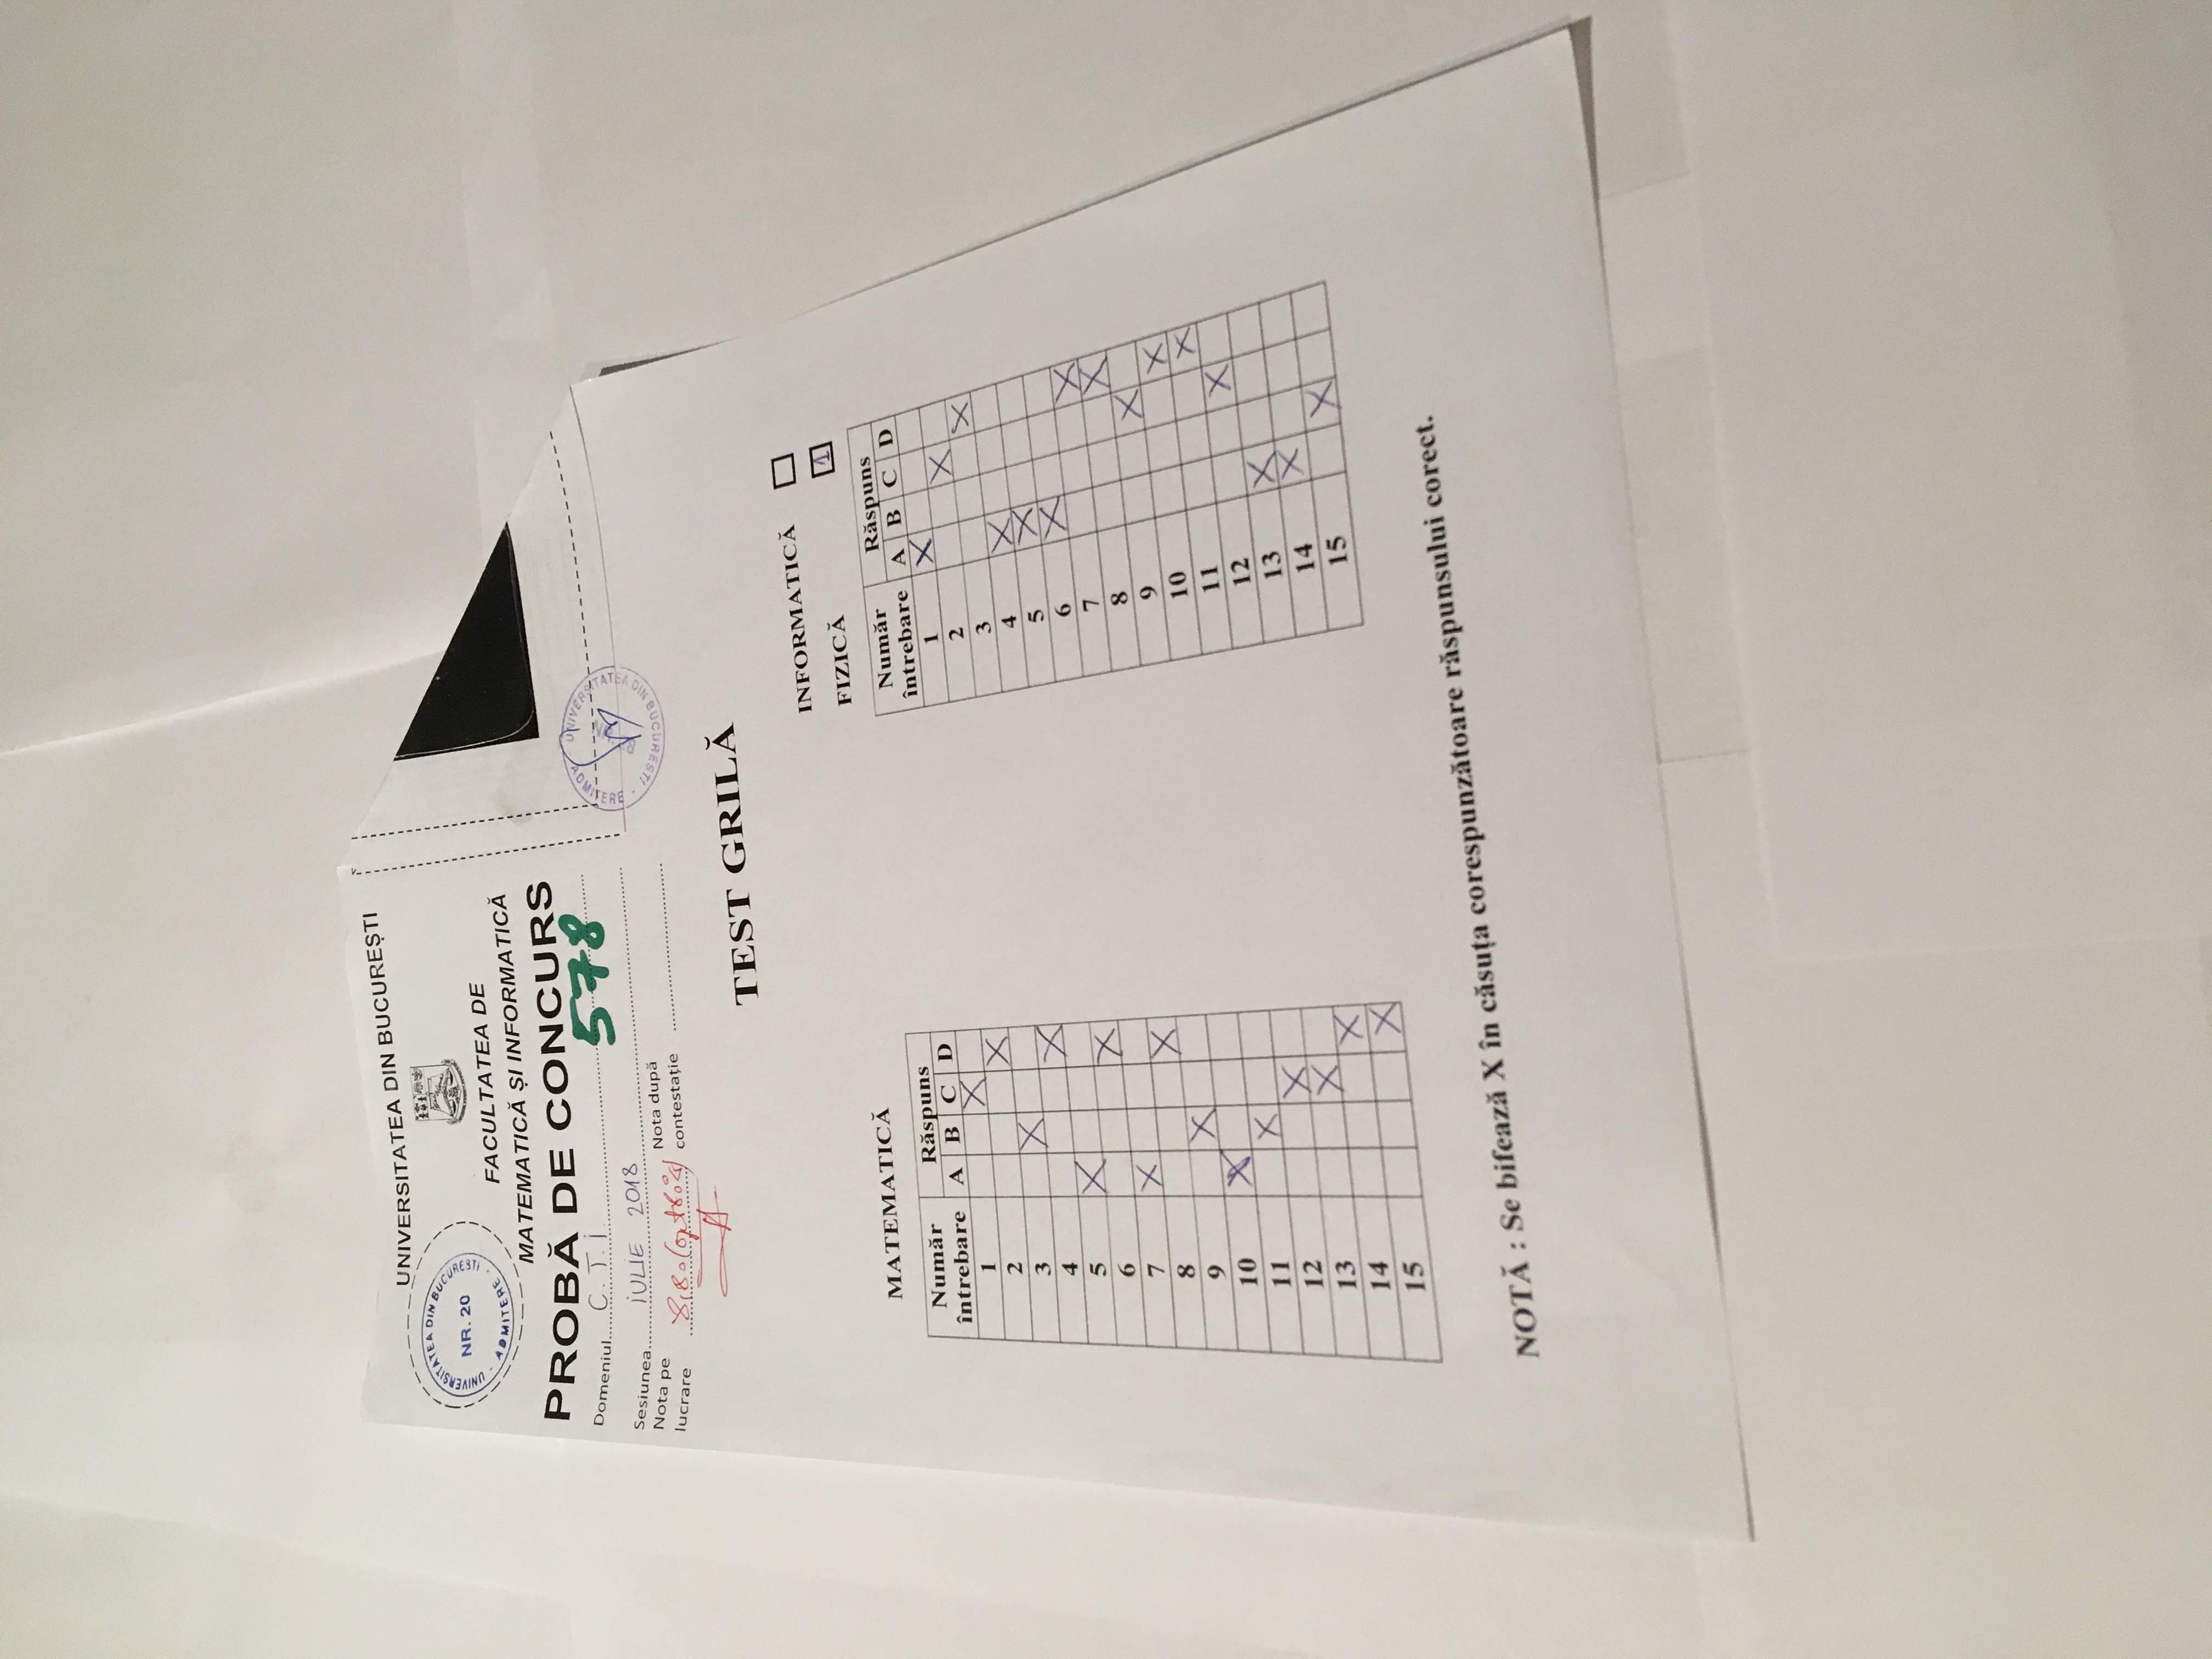 UNIVERSITATEA DIN BUCUREȘTI
UNIVERSITATEA DIN BUCUREȘTI
NR. 20
ADMITERE
FACULTATEA DE
MATEMATICĂ ȘI INFORMATICĂ
PROBĂ DE CONCURS
578
Domeniul C.T.I.
Sesiunea IULIE 2018
Nota pe lucrare 8,80
Nota după contestație
UNIVERSITATEA DIN BUCUREȘTI ADMITERE
TEST GRILĂ
INFORMATICĂ
FIZICĂ 1
MATEMATICĂ
Număr întrebare Răspuns
A B C D
1 X
2 X
3 X
4 X
5 X
6 X
7 X
8 X
9 X
10 X
11 X
12 X
13 X
14 X
15 X
Număr întrebare Răspuns
A B C D
1 X
2 X
3 X
4 X
5 X
6 X
7 X
8 X
9 X
10 X
11 X
12 X
13 X
14 X
15 X
NOTĂ : Se bifează X în căsuța corespunzătoare răspunsului corect.